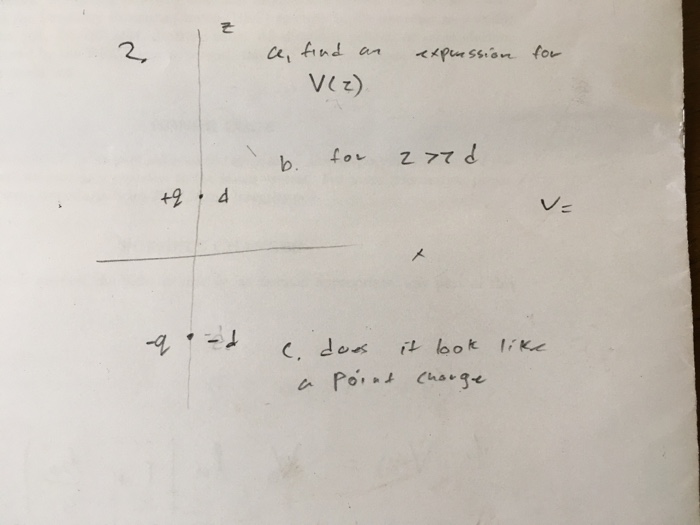 z
2. a, find an expression for
V(z)
b. for z >> d
+q d
V=
x
-q -d
c. does it look like
a point charge